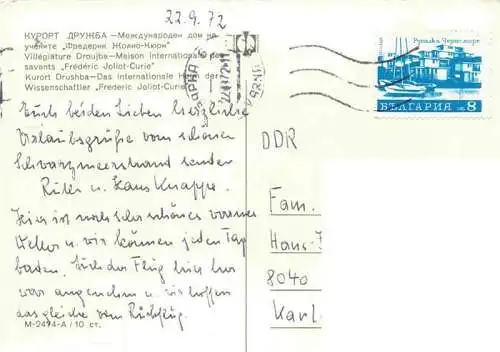 22.9.72
КУРОРТ ДРУЖБА—Международен дом на
учените "Фредерик Жолио-Кюри"
Villegiature Droujba—Maison internationale des
savants "Frédéric Joliot-Curie"
Kurort Drushba—Das Internationale Haus der
Wissenschaftler "Frederic Joliot-Curie"
ВАРНА
VARNA
БЪЛГАРИЯ 8
Euch beiden Lieben herzliche
Urlaubsgrüße vom schönen
Schwarzmeerstrand senden
u. Hans Knappe.
Hier ist noch sehr schönes warmes
Wetter u. wir können jeden Tag
baden. Auch der Flug hier her
war angenehm u. wir hoffen
das gleiche vom Rückflug.
DDR
Fam.
Hans-
8040
Karl
М-2494-А / 10 ст.